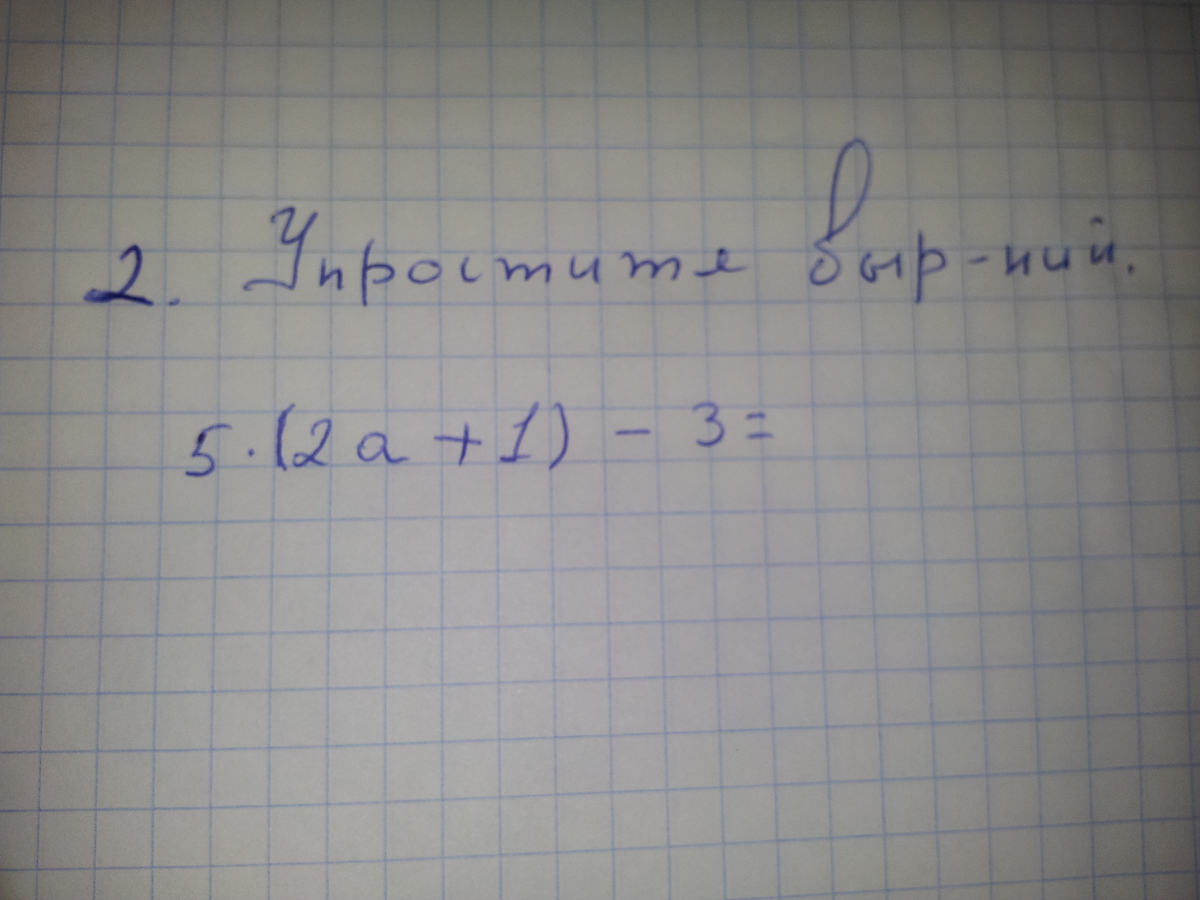 2. Упростите выр-ний.
5·(2a+1) - 3=